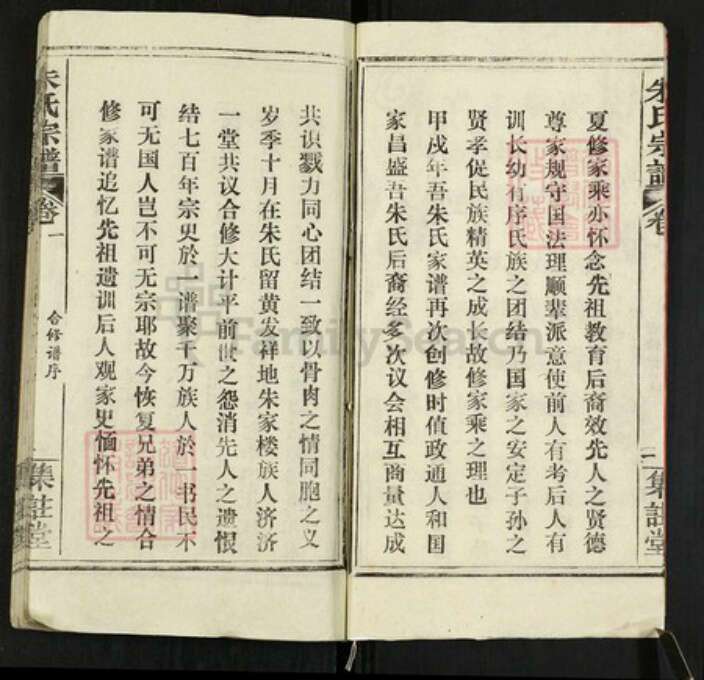 朱氏宗譜
卷
一
集註堂
夏修家乘亦怀念先祖教育后裔效先人之贤德
尊家规守国法理顺辈派意使前人有考后人有
训长幼有序氏族之团结乃国家之安定子孙之
贤孝促民族精英之成长故修家乘之理也
甲戌年吾朱氏家谱再次创修时值政通人和国
家昌盛吾朱氏后裔经多次议会相互商量达成
共识戮力同心团结一致以骨肉之情同胞之义
岁季十月在朱氏留黄发祥地朱家楼族人济济
一堂共议合修大计平前世之怨消先人之遗恨
结七百年宗史於一谱聚千万族人於一书民不
可无国人岂不可无宗耶故今恢复兄弟之情合
修家谱追忆先祖遗训后人观家史愐怀先祖之
朱氏宗譜
卷一
合修谱序
集註堂
FamilySearch